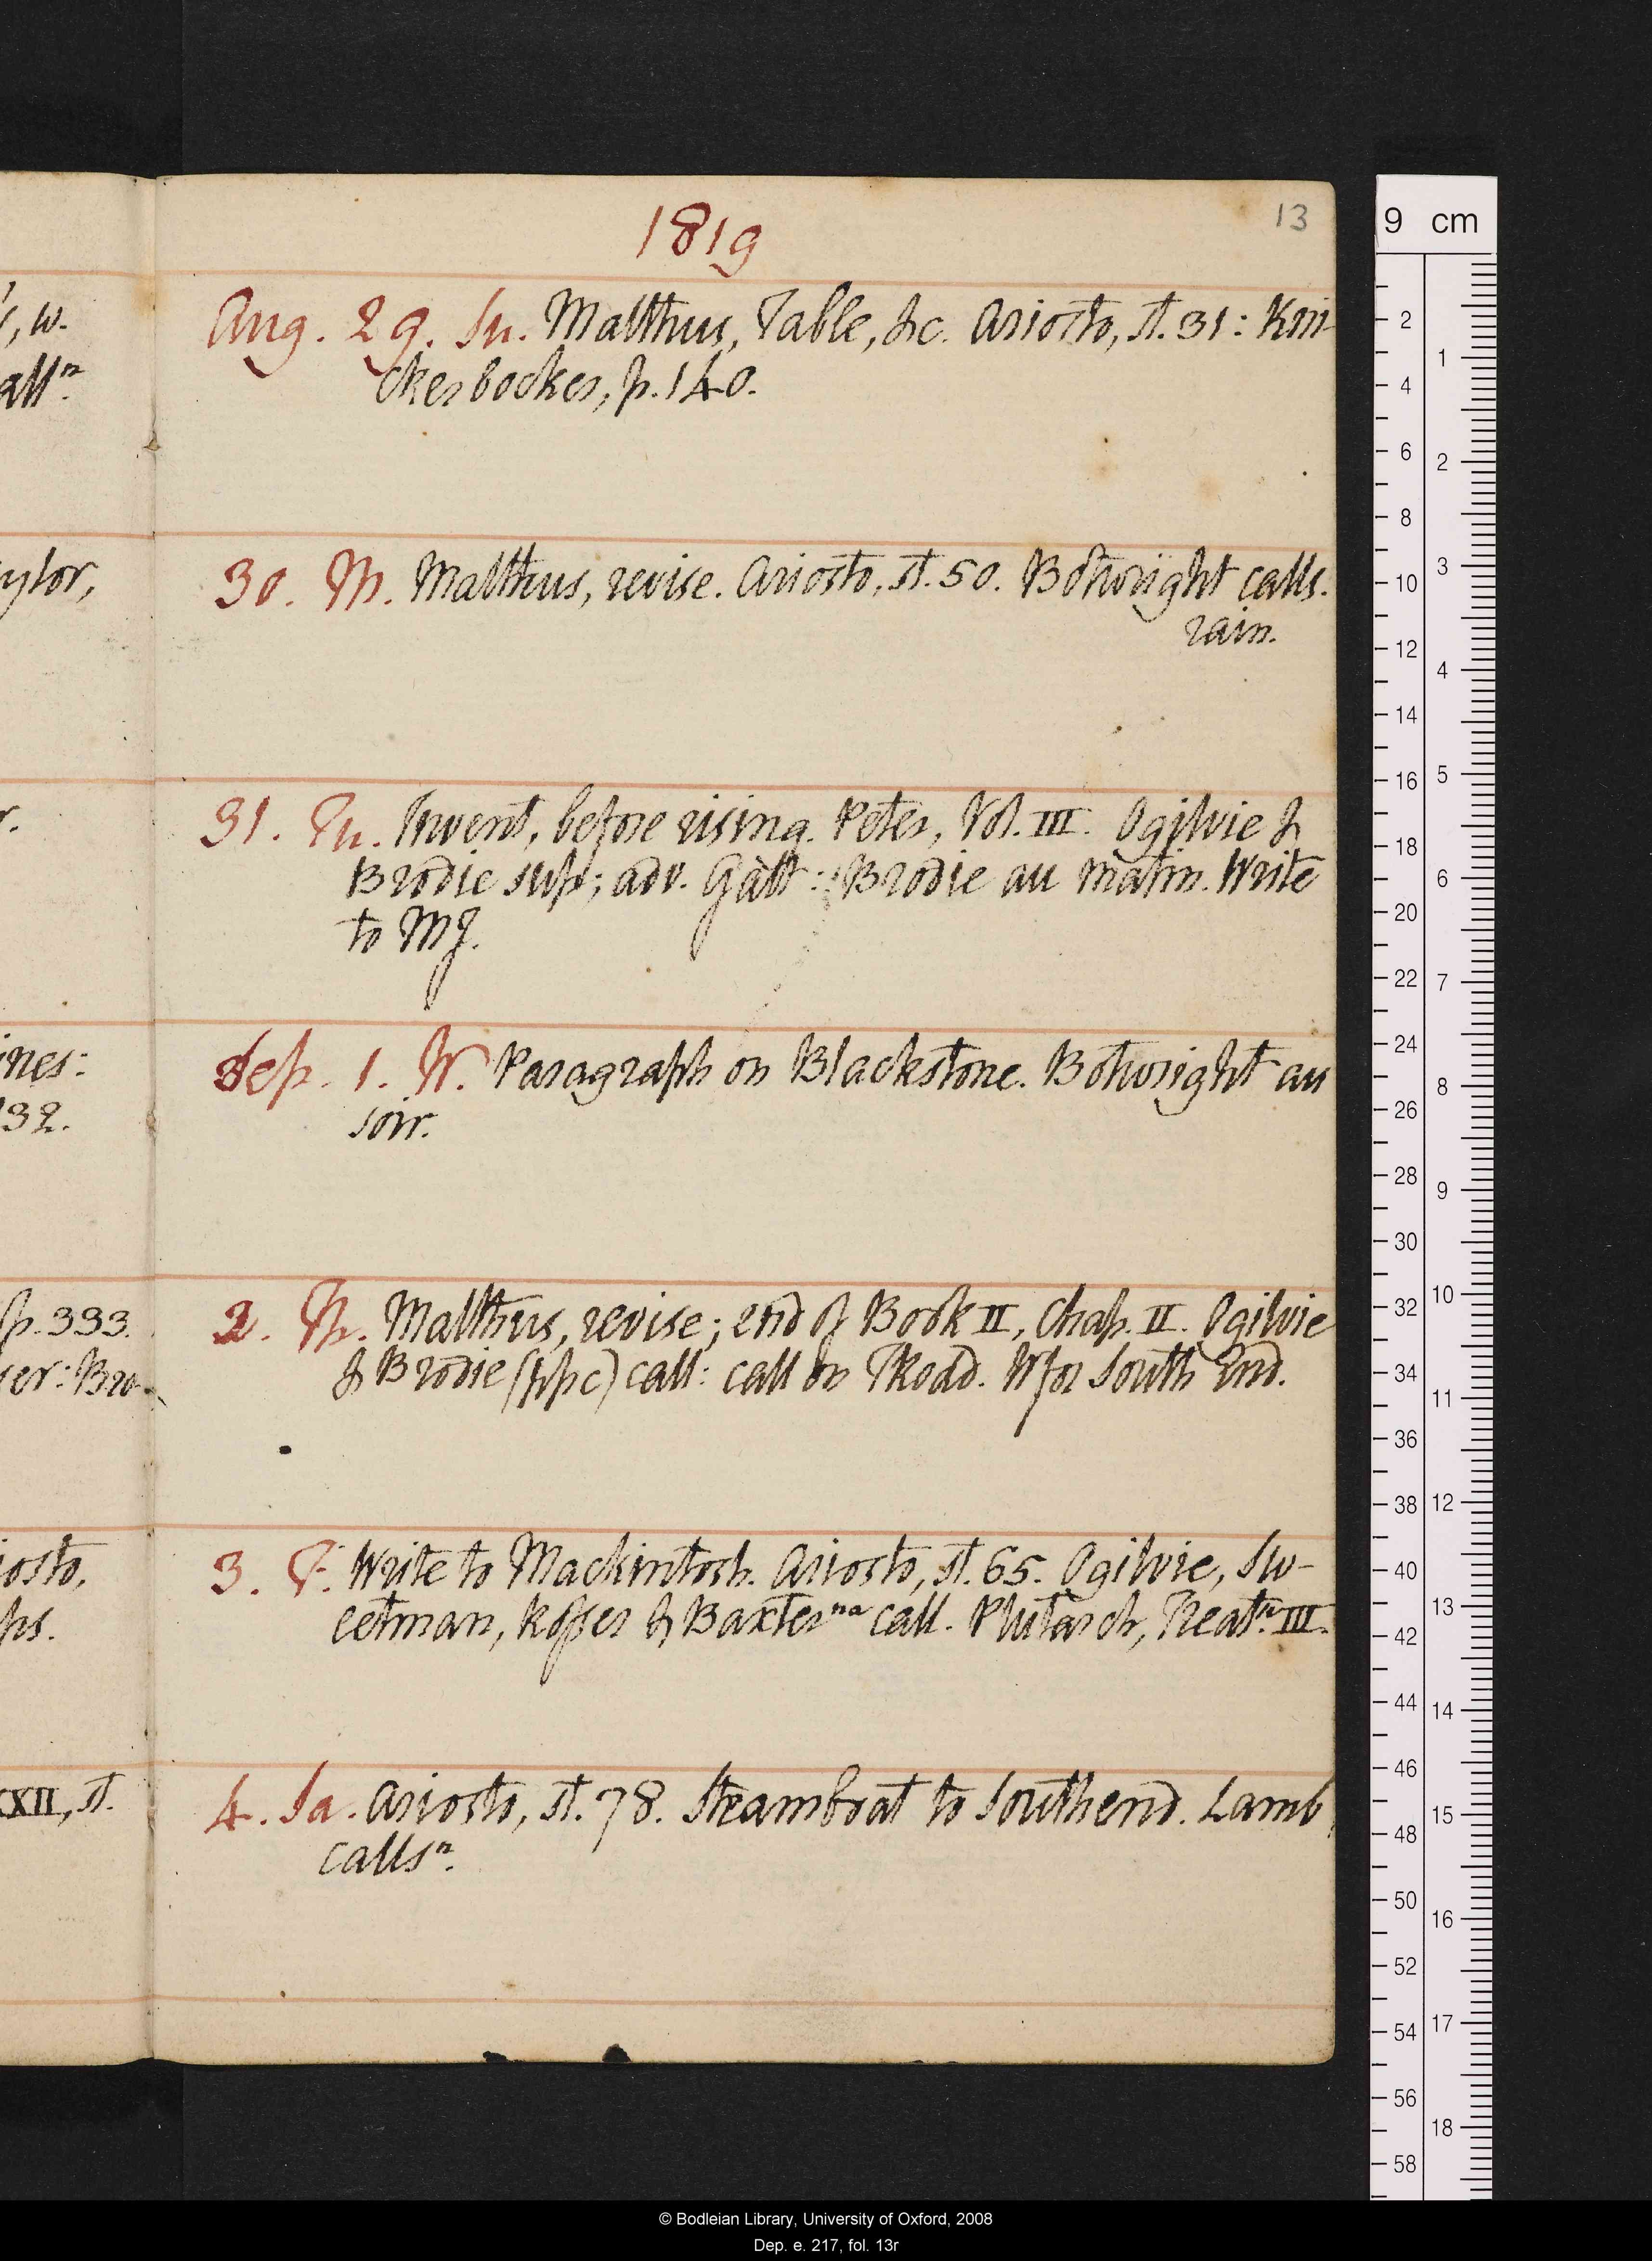 1819
13
Aug. 29. Su. Malthus, Table, &c. Ariosto, st. 31: Kni-
ckerbocker, p. 140.
30. M. Malthus, revise. Ariosto, st. 50. Botwright calls.
rain.
31. Tu. Invent, before rising. Peter, Vol. III. Ogilvie &
Brodie sup; adv. Galt: Brodie au matin. Write
to MJ.
Sep. 1. W. Paragraph on Blackstone. Botwright au
soir.
2. Th. Malthus, revise; end of Book II, Chap. II. Ogilvie
& Brodie (ppc) call: call on TRodd. W for South End.
3. F. Write to Mackintosh. Ariosto, st. 65. Ogilvie, Sw-
eetman, Rosser & Baxter na call. Plutarch, Treat.n III.
4. Sa. Ariosto, st. 78. Steamboat to Southend. Lamb
calls n.
, w.
all n.
ylor,
r.
ines:
132.
p. 393.
ser: Bro-
iosto,
ps.
XXII, st.
9 cm
2
4
6
8
10
12
14
16
18
20
22
24
26
28
30
32
34
36
38
40
42
44
46
48
50
52
54
56
58
1
2
3
4
5
6
7
8
9
10
11
12
13
14
15
16
17
18
© Bodleian Library, University of Oxford, 2008
Dep. e. 217, fol. 13r